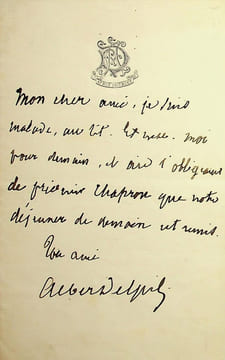 Mon cher ami, je suis
malade, au lit. Excusez-moi
pour demain, et aie l'obligeance
de prévenir Chapron que notre
déjeuner de demain est remis.
Ton ami
Albert Delpit